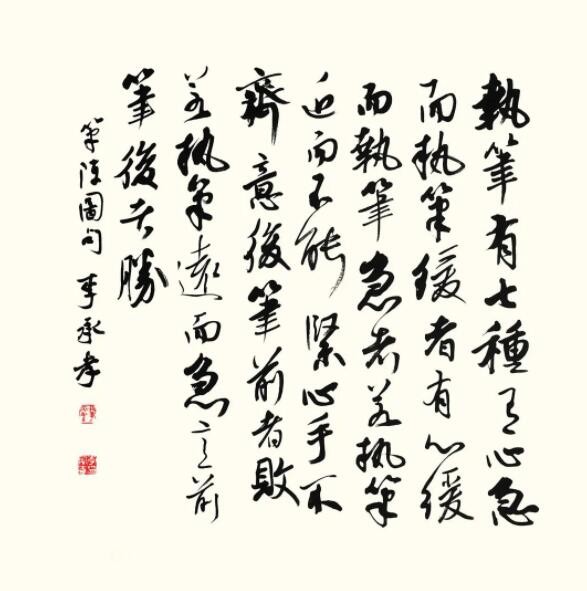 執筆有七種有心急
而执筆緩者有心緩
而執筆急者若执筆
近而不能緊心手不
齊意後筆前者敗
若执筆遠而急意前
筆後者勝
筆陣圖句 李承孝